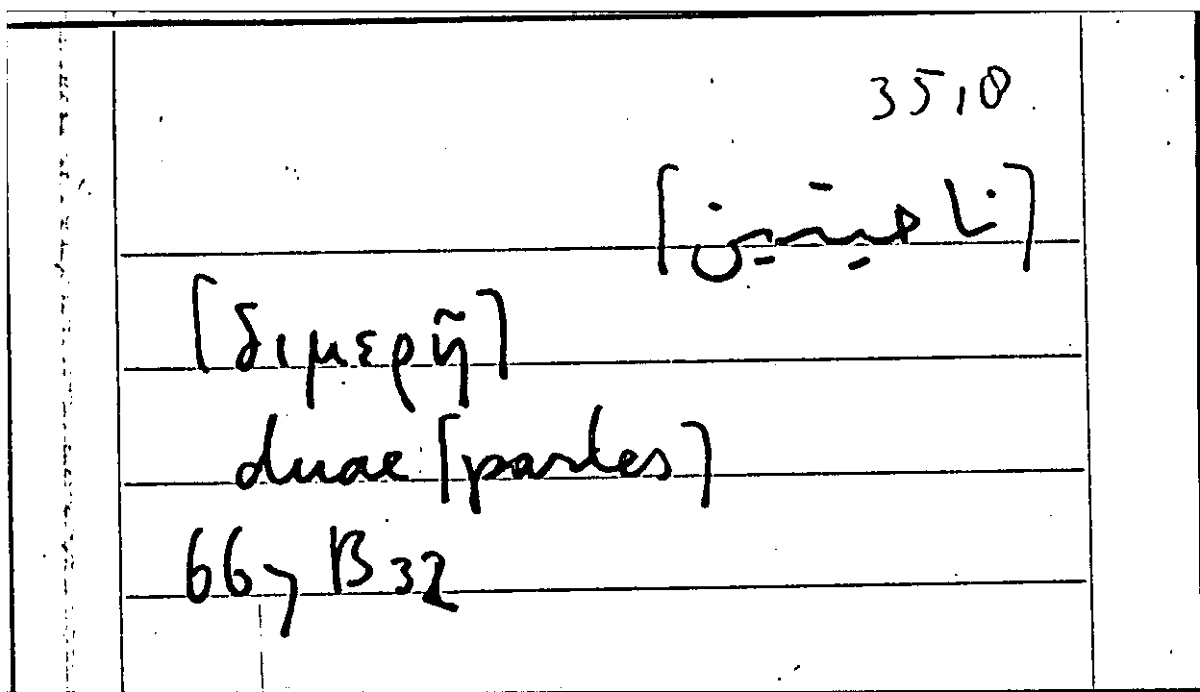 35,8
[ناحيتين]
[διμερῆ]
duae [partes]
667 B32